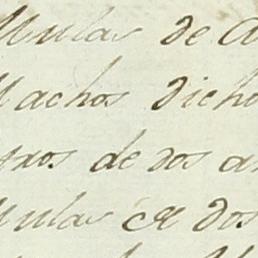 Mulas de a
Machos dicho
tros de dos a
Mulas de dos